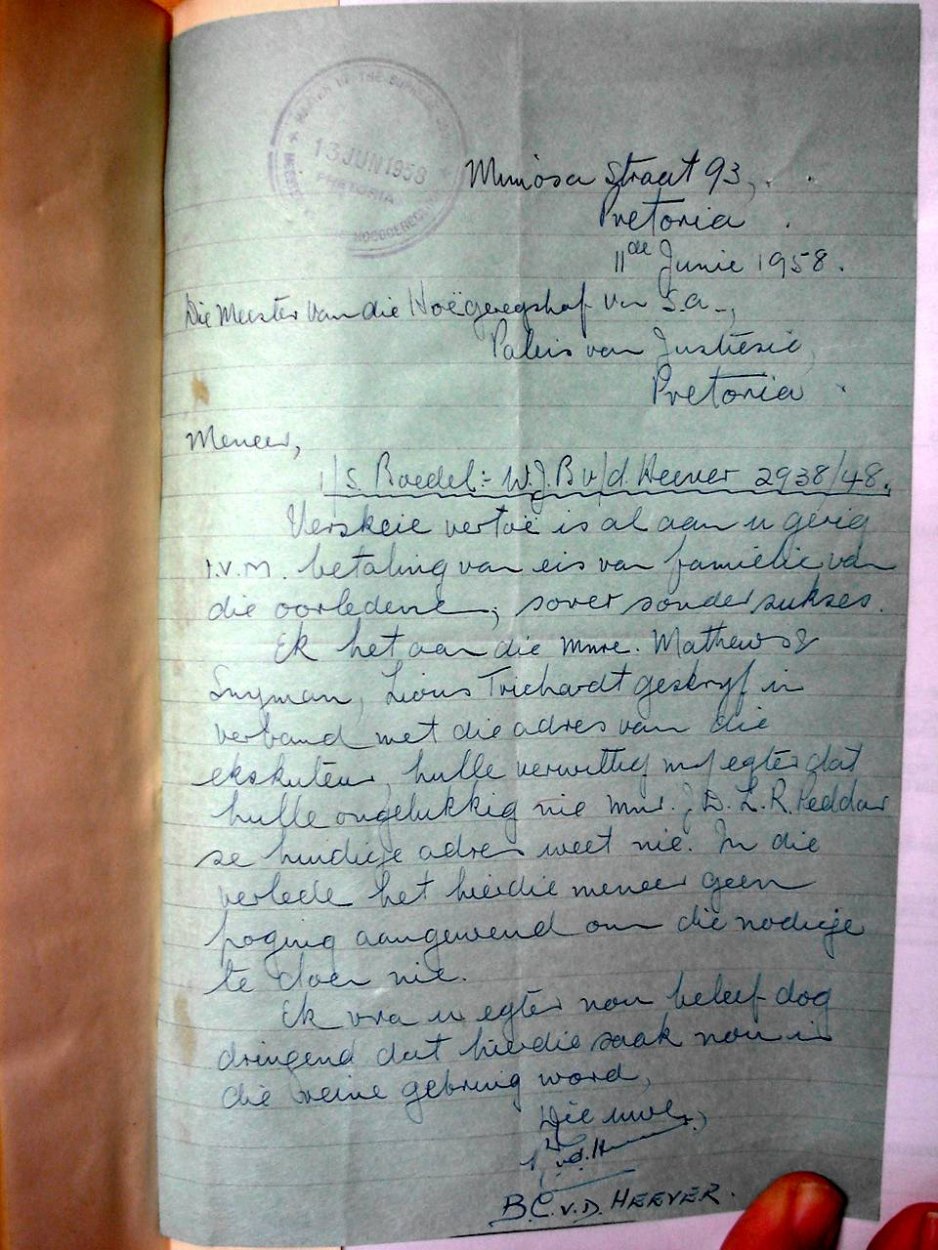 MASTER OF THE SUPREME
13 JUN 1958
PRETORIA
Mimosa Straat 93,
Pretoria.
11de Junie 1958.
Die Meester van die Hoëgeregshof van S.A.,
Paleis van Justiesie,
Pretoria.
Meneer,
i/s Boedel:- W.J.B v/d. Heever 2938/48.
Verskeie vertoë is al aan u gerig
i.v.m. betaling van eis van familie van
die oorledene, sover sonder sukses.
Ek het aan die mnre. Mathews &
Snyman, Louis Trichardt geskryf in
verband met die adres van die
eksekuteur, hulle verwittig my egter dat
hulle ongelukkig nie mnr. J.D.L.R. Peddar
se huidige adres weet nie. In die
verlede het hierdie meneer geen
poging aangewend om die nodige
te doen nie.
Ek vra u egter nou beleef dog
dringend dat hierdie saak nou in
die reine gebring word,
Die uwe,
v.d. Heever
B.C. v.D. HEEVER.